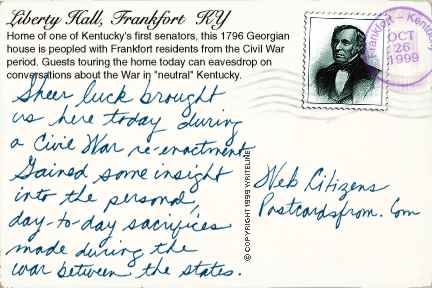 Liberty Hall, Frankfort KY
Home of one of Kentucky's first senators, this 1796 Georgian
house is peopled with Frankfort residents from the Civil War
period. Guests touring the home today can eavesdrop on
conversations about the War in "neutral" Kentucky.
Sheer luck brought
us here today during
a Civil War re-enactment.
Gained some insight
into the personal,
day-to-day sacrifices
made during the
war between the states.
© COPYRIGHT 1999 WRITELINE
Frankfort - Kentucky
OCT
26
1999
Web Citizens
Postcardsfrom.Com